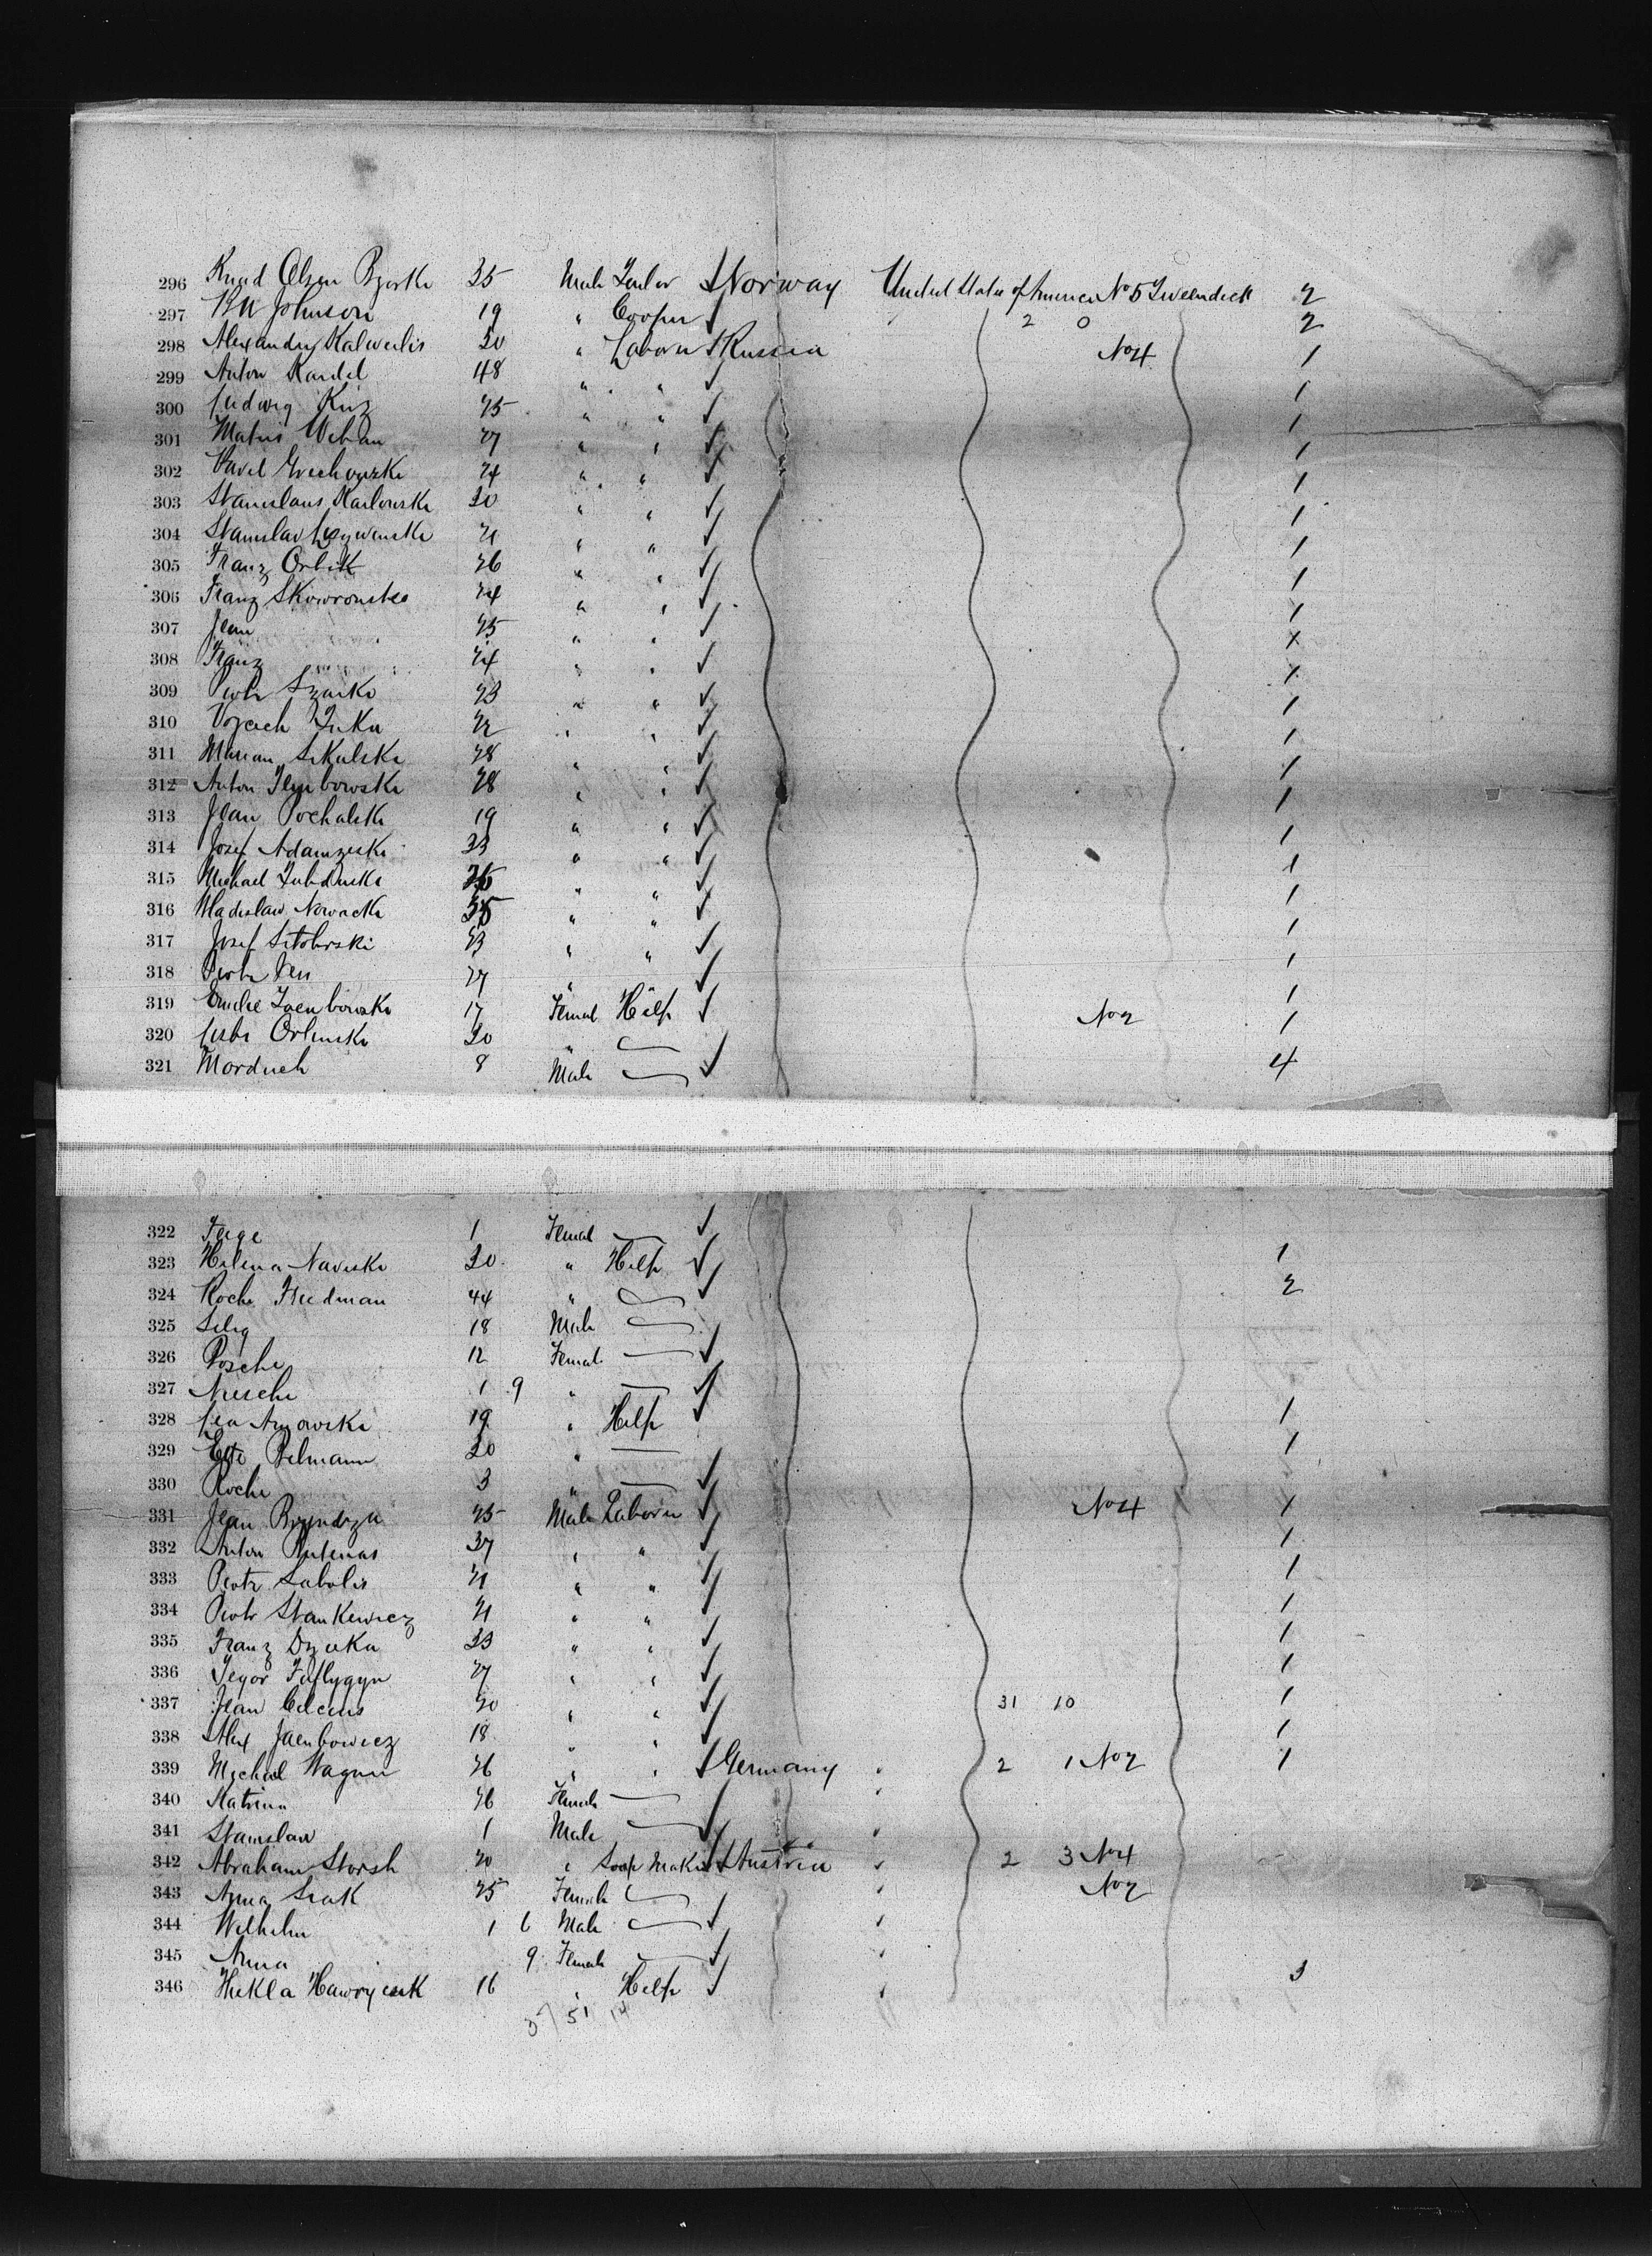 296 Knud Olsen Bjorke 35 Male Tailor Norway United States of America No 5 Tweendeck 2
297 Johnson 19 " Cooper 2 0 2
298 Alexandry Kalweilis 30 " Laborer Russia No 4 1
299 Anton Kardel 48 " " 1
300 Ludwig Kuz 25 " " 1
301 Matus Weban 27 " " 1
302 Pavel 24 " " 1
303 Stanislaus Karlowski 20 " " 1
304 Stanislav 21 " " 1
305 Franz Orbik 26 " " 1
306 Franz Skowronski 24 " " 1
307 Jean 25 " " 1
308 Franz 24 " "
309 Piotr Szarko 23 " " 1
310 Vojcech Zuka 22 " " 1
311 Marian Sikulski 28 " " 1
312 Anton 28 " " 1
313 Jean Pochalski 19 " " 1
314 Josef Adamzeski 33 " " 1
315 Michael " " 1
316 Wladislaw Nowacki " " 1
317 Josef 23 " " 1
318 Piotr 27 " 1
319 Emilie 17 Femal Help No 2 1
320 Orlinski 20 " 1
321 Morduch 8 Male 4
322 Feige 1 Femal
323 Helena Naviski 20 " Help 1
324 Roche Friedman 44 " 2
325 Selig 18 Male
326 Posche 12 Femal
327 Nusche 1 9 "
328 Lea 19 " Help 1
329 Belmann 20 " 1
330 Roche 3 "
331 Jean Bryndza 25 Male Laborer No 4 1
332 Anton Butenas 37 " " 1
333 Piotr Sabolis 21 " " 1
334 Piotr Stankewicz 21 " " 1
335 Franz Dzieka 23 " " 1
336 Jegor 27 " " 1
337 Jean 20 " " 31 10 1
338 Alex Jacubowicz 18 " " 1
339 Mychael Wagner 26 " " Germany " 2 1 No 2 1
340 Katrina 26 Female "
341 Stanislaw 1 Male "
342 Abraham Storch 20 " Soap Maker Austria " 2 3 No 4
343 Anna Srak 25 Female " No 2
344 Wilhelm 1 6 Male "
345 Anna 9 Female " 3
346 Hekla Hawryczuk 16 " Help "
37 51 14